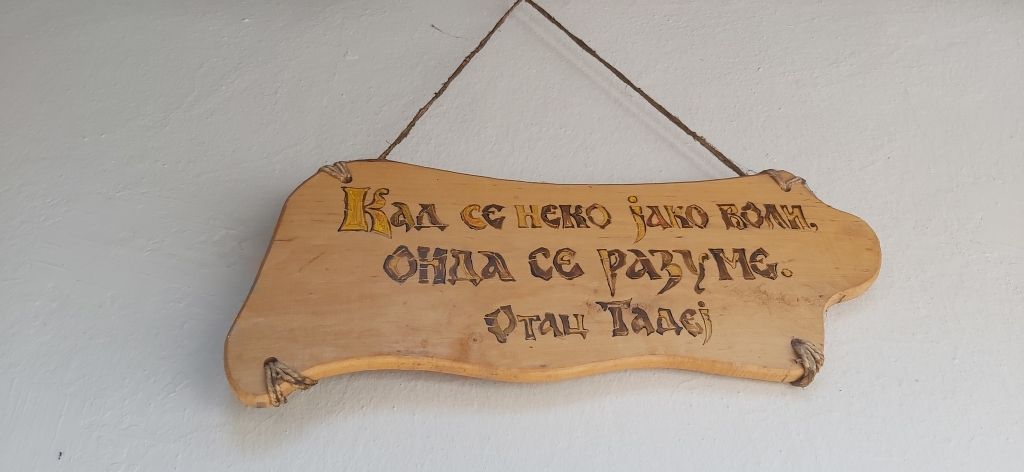 Кад се неко јако воли,
онда се разуме.
Отац Тадеј